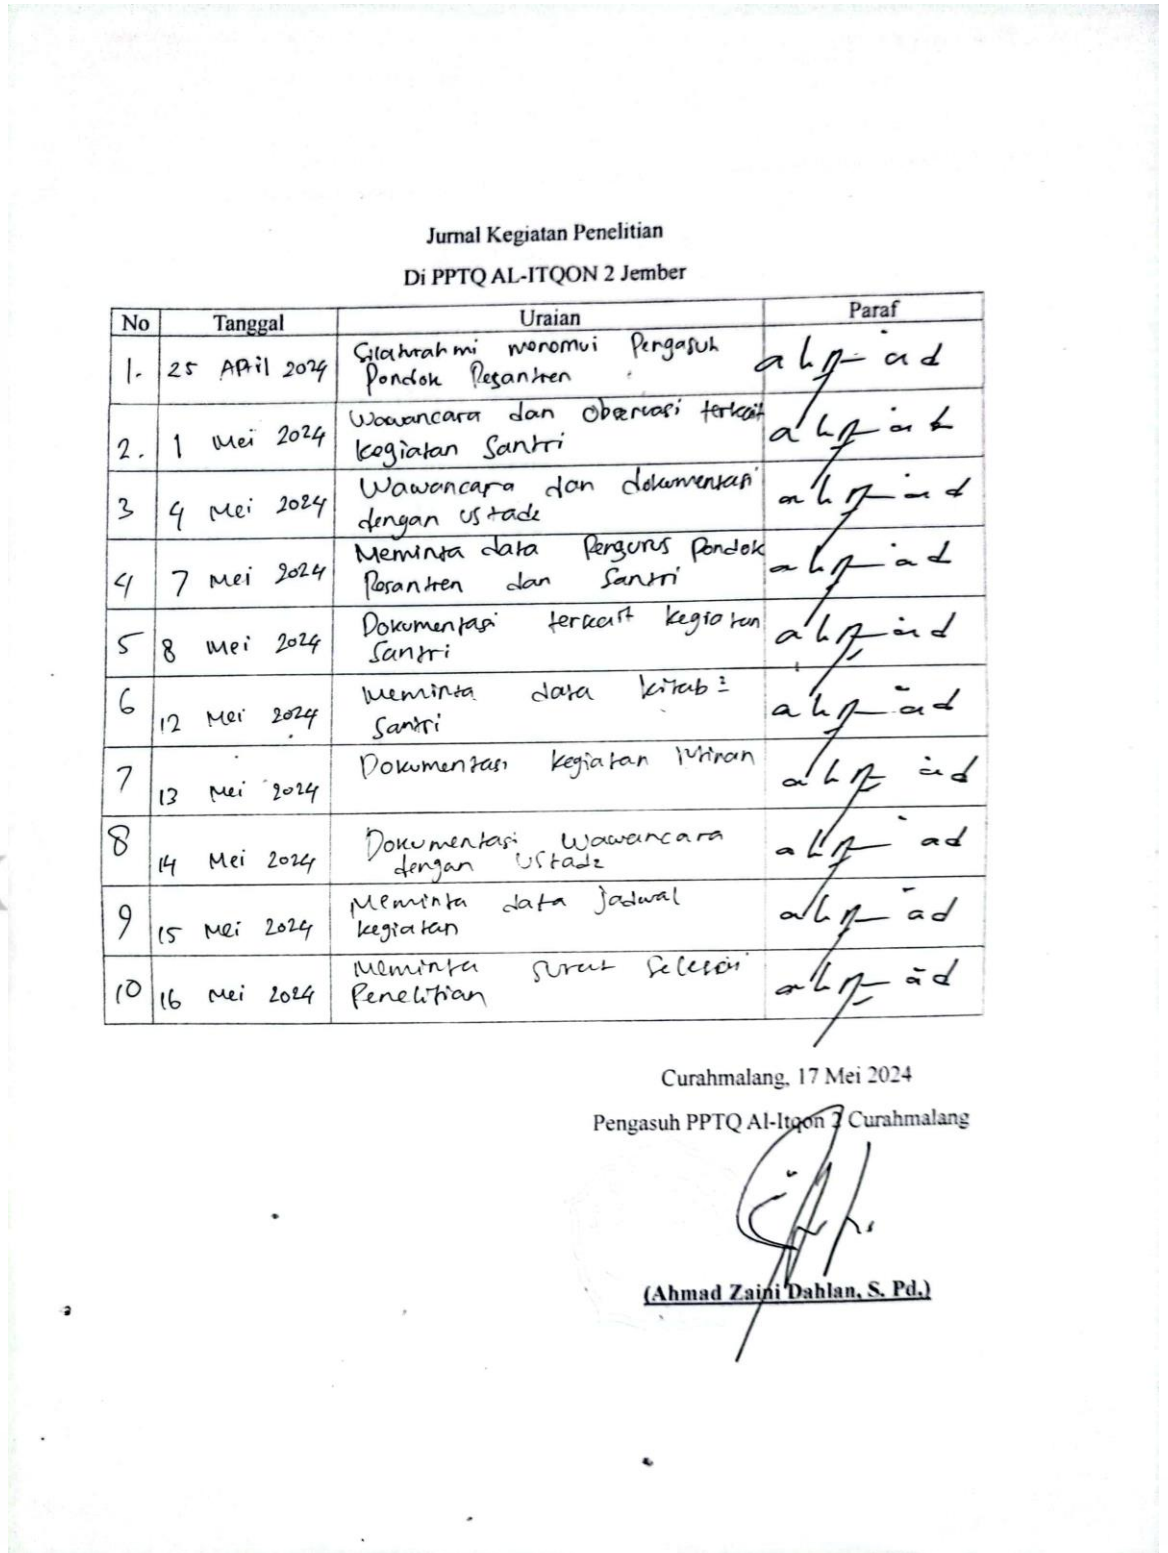 Jurnal Kegiatan Penelitian
Di PPTQ AL-ITQON 2 Jember
No Tanggal Uraian Paraf
1. 25 April 2024 Silaturahmi menemui Pengasuh
Pondok Pesantren
2. 1 Mei 2024 Wawancara dan Observasi terkait
kegiatan Santri
3 4 Mei 2024 Wawancara dan dokumentasi
dengan ustadz
4 7 Mei 2024 Meminta data Pengurus Pondok
Pesantren dan Santri
5 8 Mei 2024 Dokumentasi terkait kegiatan
Santri
6 12 Mei 2024 Meminta data kitab2
Santri
7 13 Mei 2024 Dokumentasi kegiatan
8 14 Mei 2024 Dokumentasi Wawancara
dengan Ustadz
9 15 Mei 2024 Meminta data jadwal
kegiatan
10 16 Mei 2024 Meminta surat selesai
Penelitian
Curahmalang, 17 Mei 2024
Pengasuh PPTQ Al-Itqon 2 Curahmalang
(Ahmad Zaini Dahlan, S. Pd.)